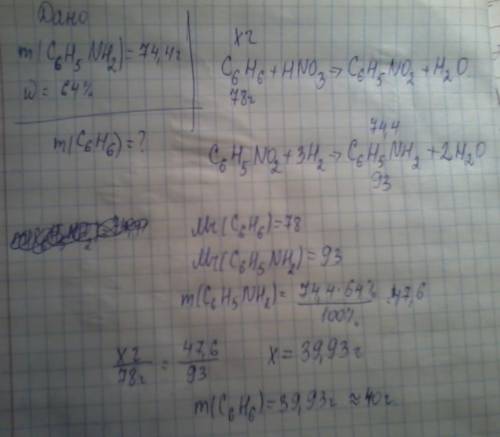 Дано
m(C₆H₅NH₂)=74,4г
ω = 64%
m(C₆H₆)=?
xг
C₆H₆+HNO₃→C₆H₅NO₂+H₂O
78г
74,4
C₆H₅NO₂+3H₂→C₆H₅NH₂+2H₂O
93
Mr(C₆H₆)=78
Mr(C₆H₅NH₂)=93
m(C₆H₅NH₂)= 74,4·64% / 100% 47,6
xг / 78г = 47,6 / 93 x=39,93г
m(C₆H₆)=39,93г ≈40г